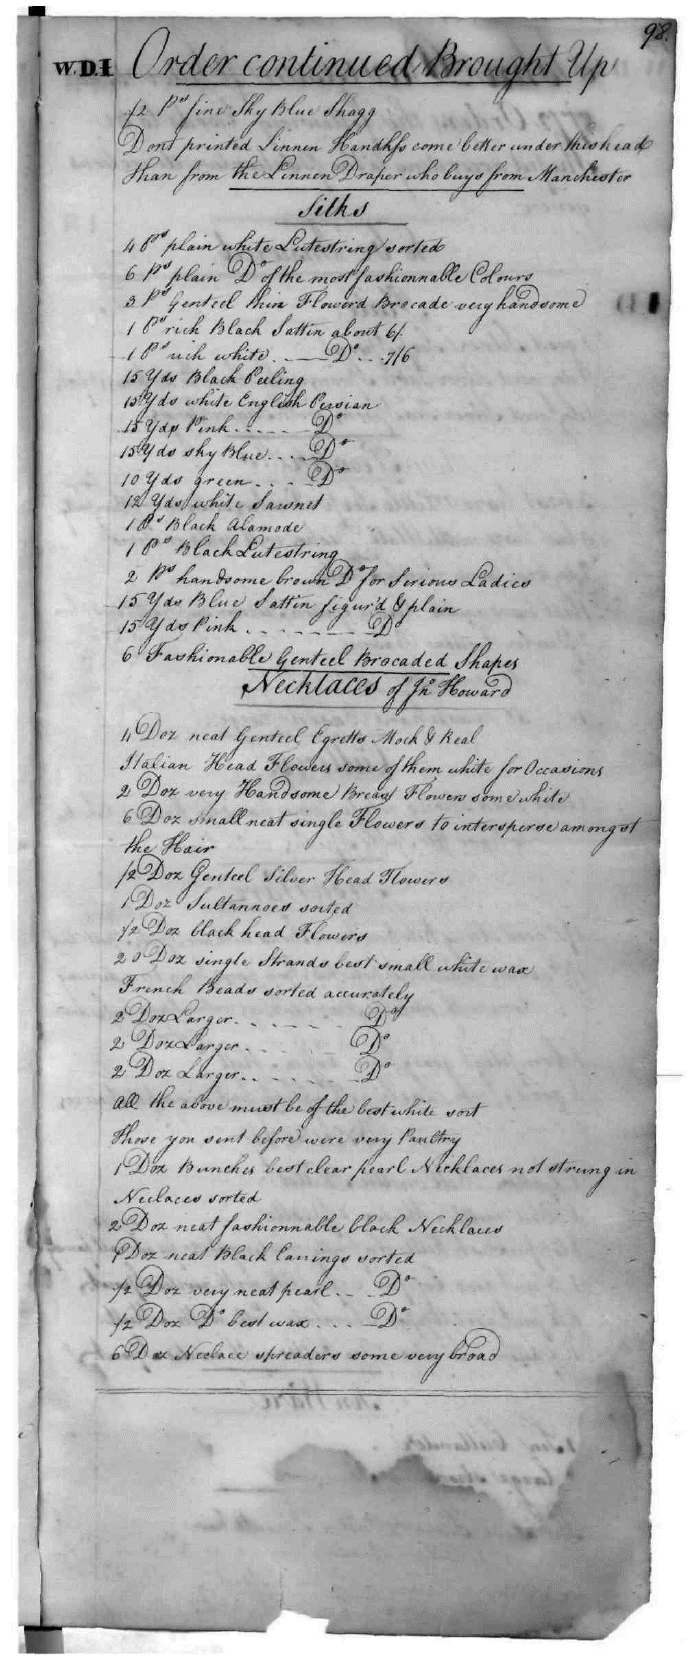 98.
W.D.I Order continued Brought Up
1/2 Ps fine Sky Blue Shagg
Dont printed Linnen Handkfs come better under this head
than from the Linnen Draper who buys from Manchester
Silks
4 Ps plain white Lutestring sorted
6 Ps plain Do of the most fashionnable Colours
3 Ps Genteel thin Flowerd Brocade very handsome
1 Ps rich Black Sattin about 6/.
1 Ps rich white . . . Do . . 7/6
15 Yds Black Peeling
15 Yds white English Persian
15 Yds Pink . . . . . Do
15 Yds sky Blue . . . Do
10 Yds green . . . Do
12 Yds white Sarsnet
1 Ps Black Alamode
1 Ps Black Lutestring
2 Ps handsome brown Do for Serious Ladies
15 Yds Blue Sattin figur'd & plain
15 Yds Pink . . . . . . . . Do
6 Fashionable Genteel Brocaded Shapes
Necklaces of Jno Howard
4 Doz neat Genteel Egretts Mock & Real
Italian Head Flowers some of them white for Occasions
2 Doz very Handsome Breast Flowers some white
6 Doz small neat single Flowers to intersperse amongst
the Hair
1/2 Doz Genteel Silver Head Flowers
1 Doz Sultannoes sorted
1/2 Doz black head Flowers
20 Doz single Strands best small white wax
French Beads sorted accurately
2 Doz Larger . . . . . . . Do
2 Doz Larger . . . . . . Do
2 Doz Larger . . . . . . Do
All the above must be of the best white sort
Those you sent before were very Paultry
1 Doz Bunches best clear pearl Necklaces not strung in
Neclaces sorted
2 Doz neat fashionnable black Necklaces
Doz neat Black Earrings sorted
1/2 Doz very neat pearl . . . Do
1/2 Doz Do best wax . . . . Do
6 Doz Neclace spreaders some very broad